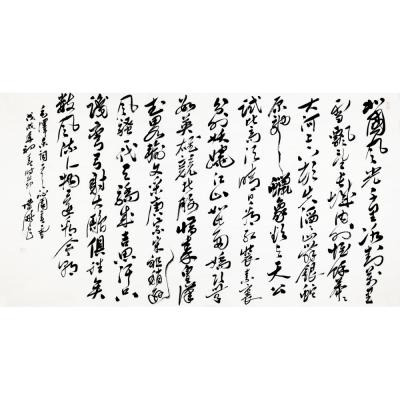 北國風光千里冰封萬里
雪飄望長城内外惟餘莽莽
大河上下頓失滔滔山舞銀蛇
原馳蠟象欲與天公
試比高須晴日看紅裝素裹
分外妖嬈江山如此多嬌引無
數英雄競折腰惜秦皇漢
武略輸文采唐宗宋祖稍遜
風騷一代天驕成吉思汗只
識彎弓射大雕俱往矣
數風流人物還看今朝
毛澤東詞沁園春雪
戊戌年初春